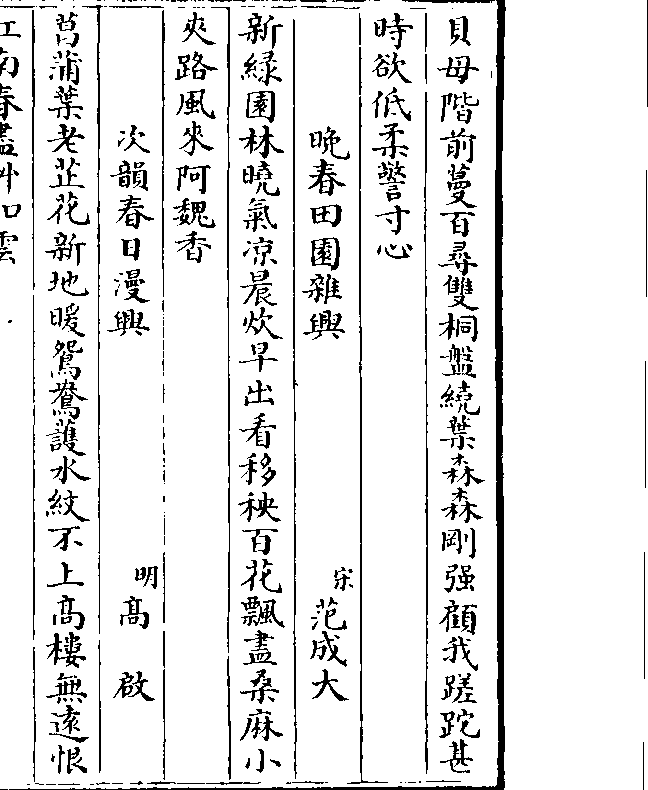 貝母階前蔓百尋雙桐盤繞葉森森剛强顧我蹉跎甚
時欲低柔警寸心
晩春田園雜興 宋 范成大
新緑園林曉氣凉晨炊早出看移秧百花飄盡桑麻小
夾路風來阿魏香
次韻春日漫興 明 髙啟
菖蒲葉老芷花新地暖鴛鴦護水紋不上髙樓無遠恨
江南春盡艸如雲